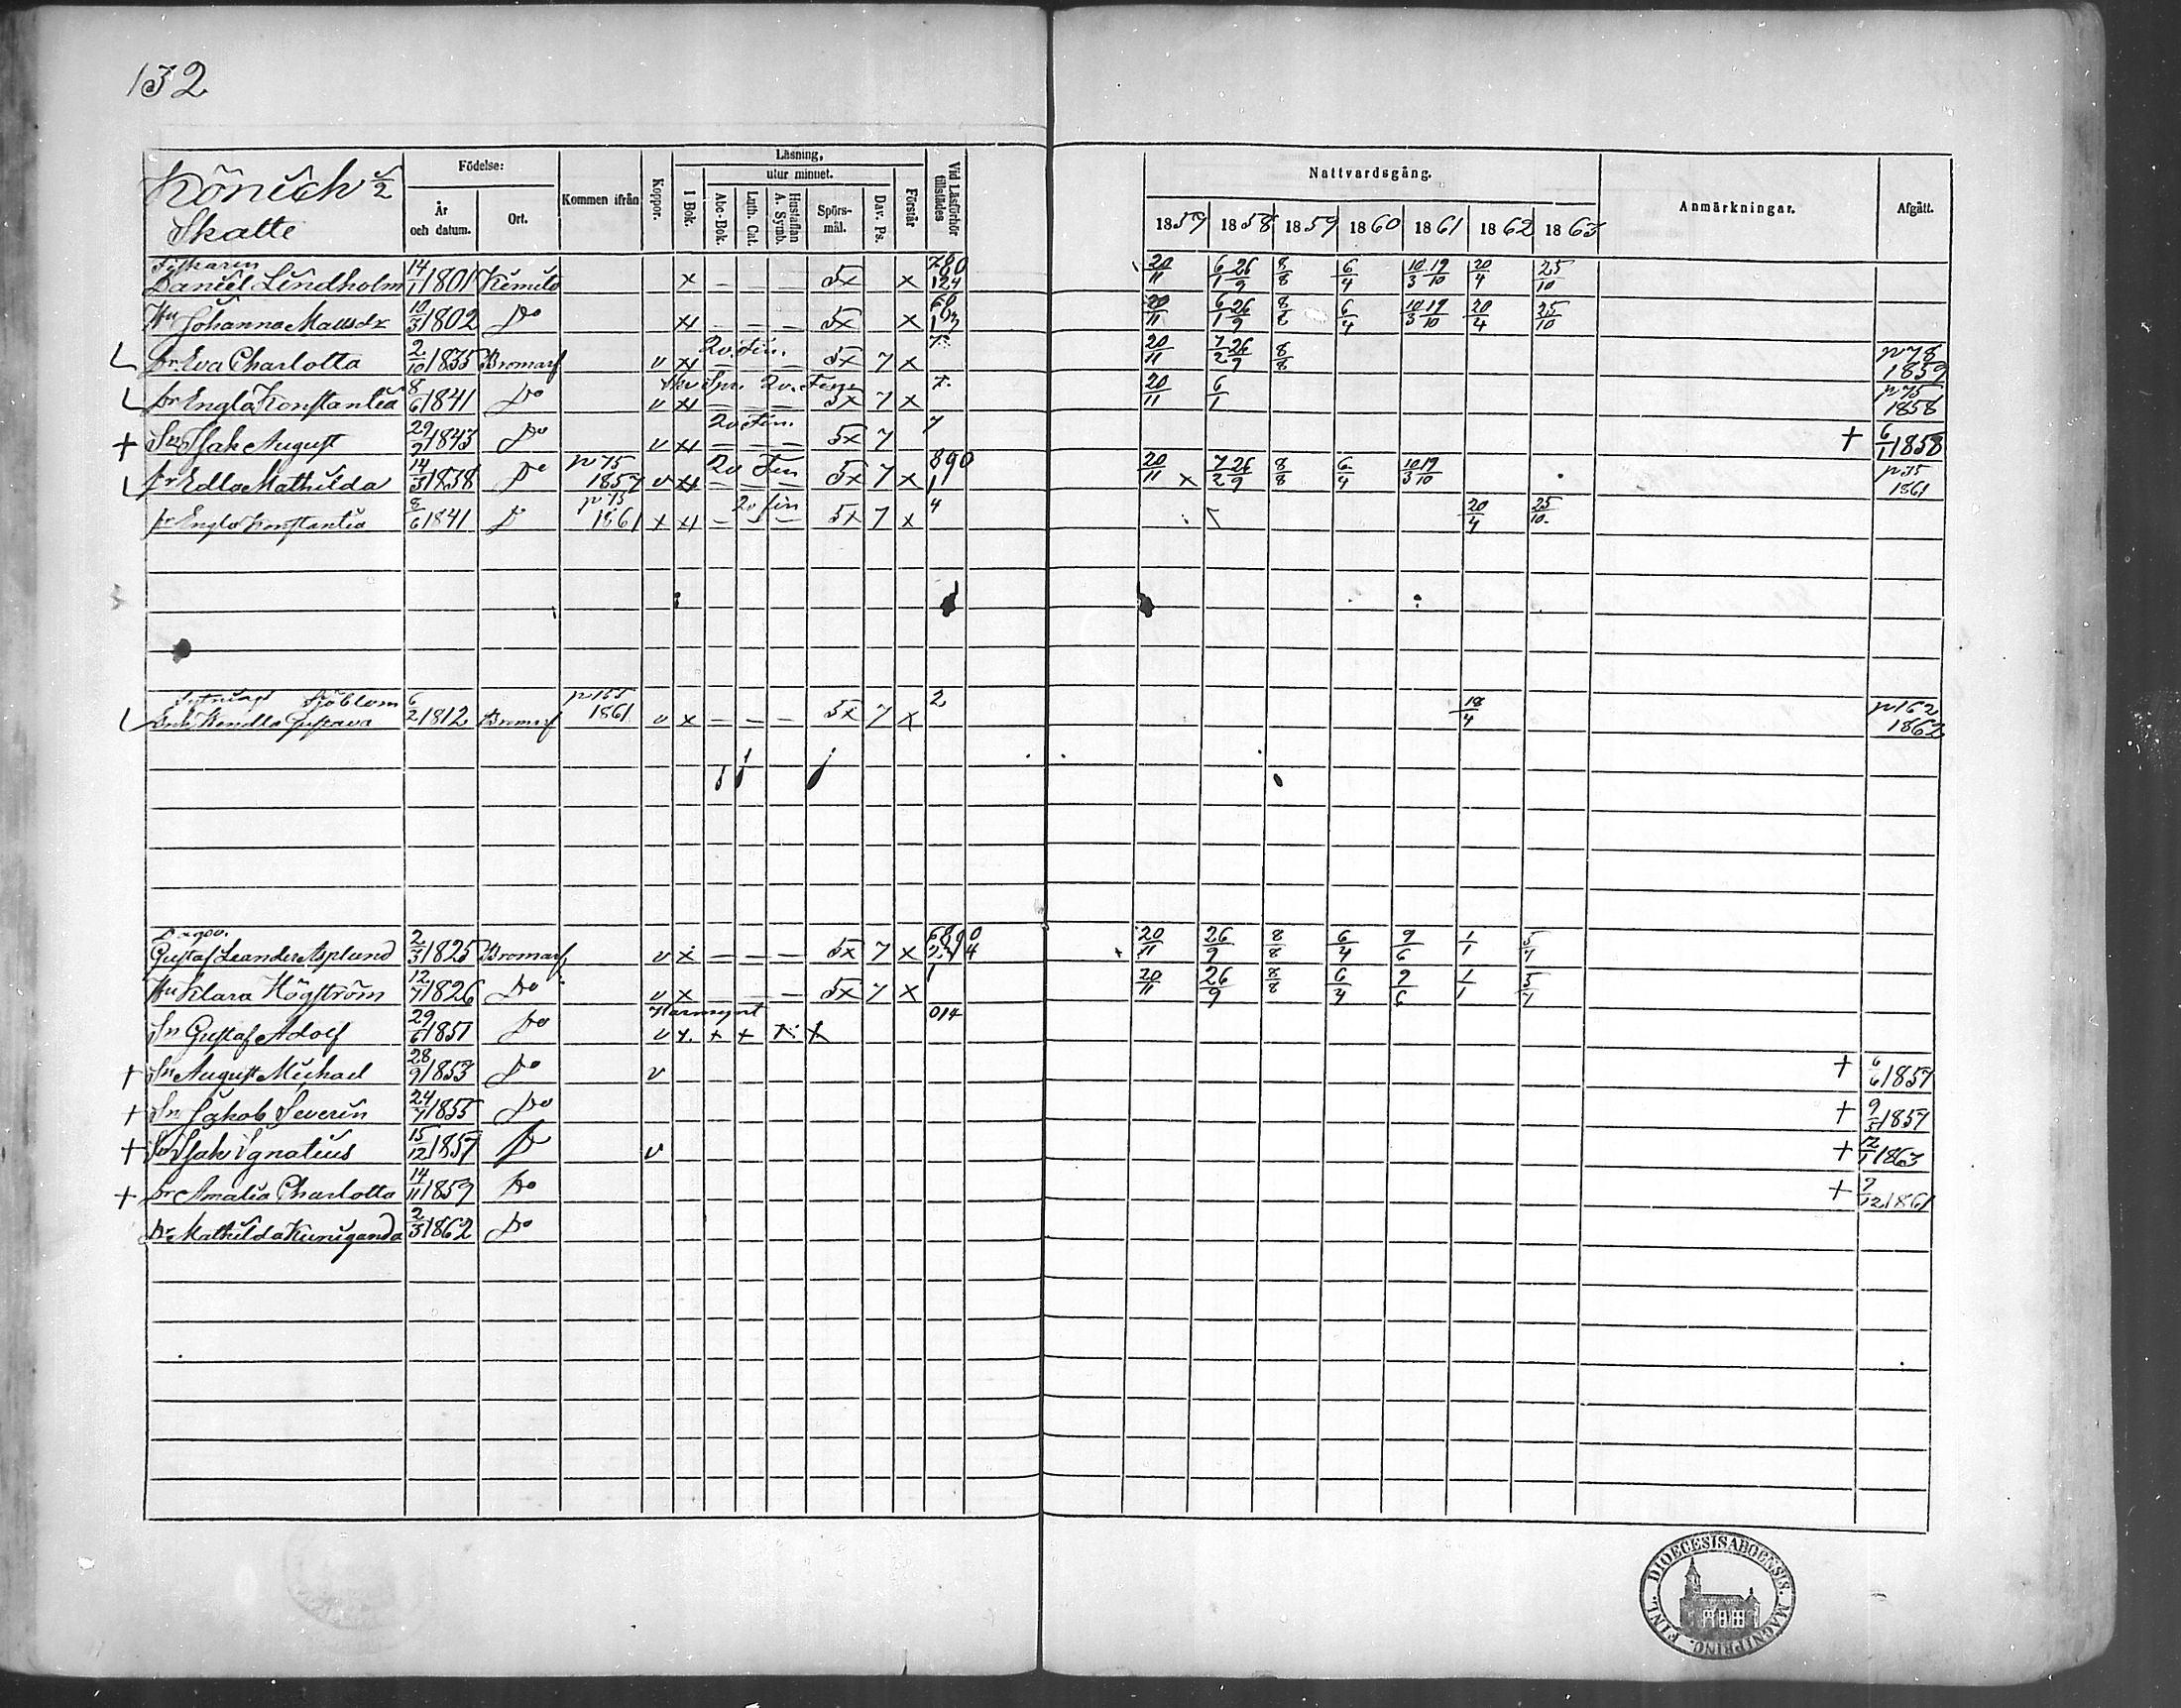 132
Skatte
Födelse:
År och datum.
Ort.
Kommen ifrån
Koppor.
Läsning,
utur minnet.
I Bok.
Abc-Bok.
Luth. Cat.
Hustaflan A. Symb.
Spörs-mål.
Dav. Ps.
Förstår
Vid Läsförhör tillstädes
Nattvardsgång.
1857 1858 1859 1860 1861 1862 1863
Anmärkningar.
Afgått.
Daniel Lindholm 14/1 1801 Kimito x — — — 5x x 20/11 6/1 26/9 8/8 6/4 10/3 19/10 20/4 25/10
Hu Johanna Matsdr 10/3 1802 Do x — — — 5x x 20/11 6/1 26/9 8/8 6/4 10/3 19/10 20/4 25/10
Dr Eva Charlotta 2/10 1835 Bromarf v x — — — 5x 7 x 20/11 7/2 26/9 8/8 p 78 1859
Dr Engla Konstantia 8/6 1841 Do v x — — — 5x 7 x 20/11 6/1 p 75 1858
+ Sn Isak August 29/9 1843 Do v x — — — 5x 7 + 6/1 1858
Dr Edla Mathilda 14/3 1838 Do p 75 1857 v x — — — 5x 7 x 20/11 x 7/2 26/9 8/8 6/4 10/3 19/10 p 75 1861
Dr Engla Konstantia 8/6 1841 D p 75 1861 x x — — — 5x 7 x 4 20/4 25/10
Sjöblom
Hendla Gustava 6/2 1812 Bromarf p 155 1861 v x — — — 5x 7 x 2 18/4 p 162 1862
Gustaf Leander Asplund 2/3 1825 Bromarf v x — — — 5x 7 x 20/11 26/9 8/8 6/4 9/6 1/1 5/7
Hu Klara Högström 12/7 1826 Do v x — — — 5x 7 x 20/11 26/9 8/8 6/4 9/6 1/1 5/7
Sn Gustaf Adolf 29/6 1851 Do v x + + x x 014
+ Sn August Michael 28/9 1853 Do v + 6/6 1857
+ Sn Jakob Severin 24/7 1855 Do + 9/5 1857
+ Sn Isak Ignatius 15/12 1857 D v + 12/1 1863
+ Dr Amalia Charlotta 14/11 1859 Do + 7/12 1861
Dr Mathilda Kunigunda 2/3 1862 Do
FINL. DIOECESIS ABOENSIS. MAGNI PRINC.